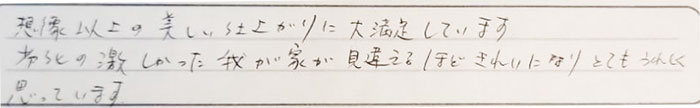 想像以上の美しい仕上がりに大満足しています
劣化の激しかった我が家が見違えるほどきれいになりとてもうれしく
思っています